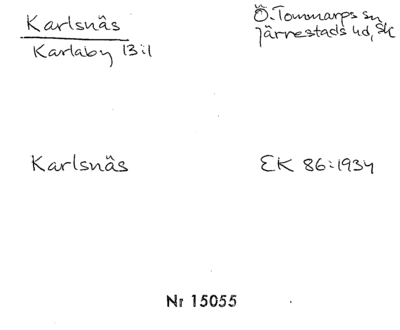 Karlsnäs
Karlaby 13:1
Ö. Tommarps sn
Järrestads hd, Sk
Karlsnäs
EK 86:1934
Nr 15055